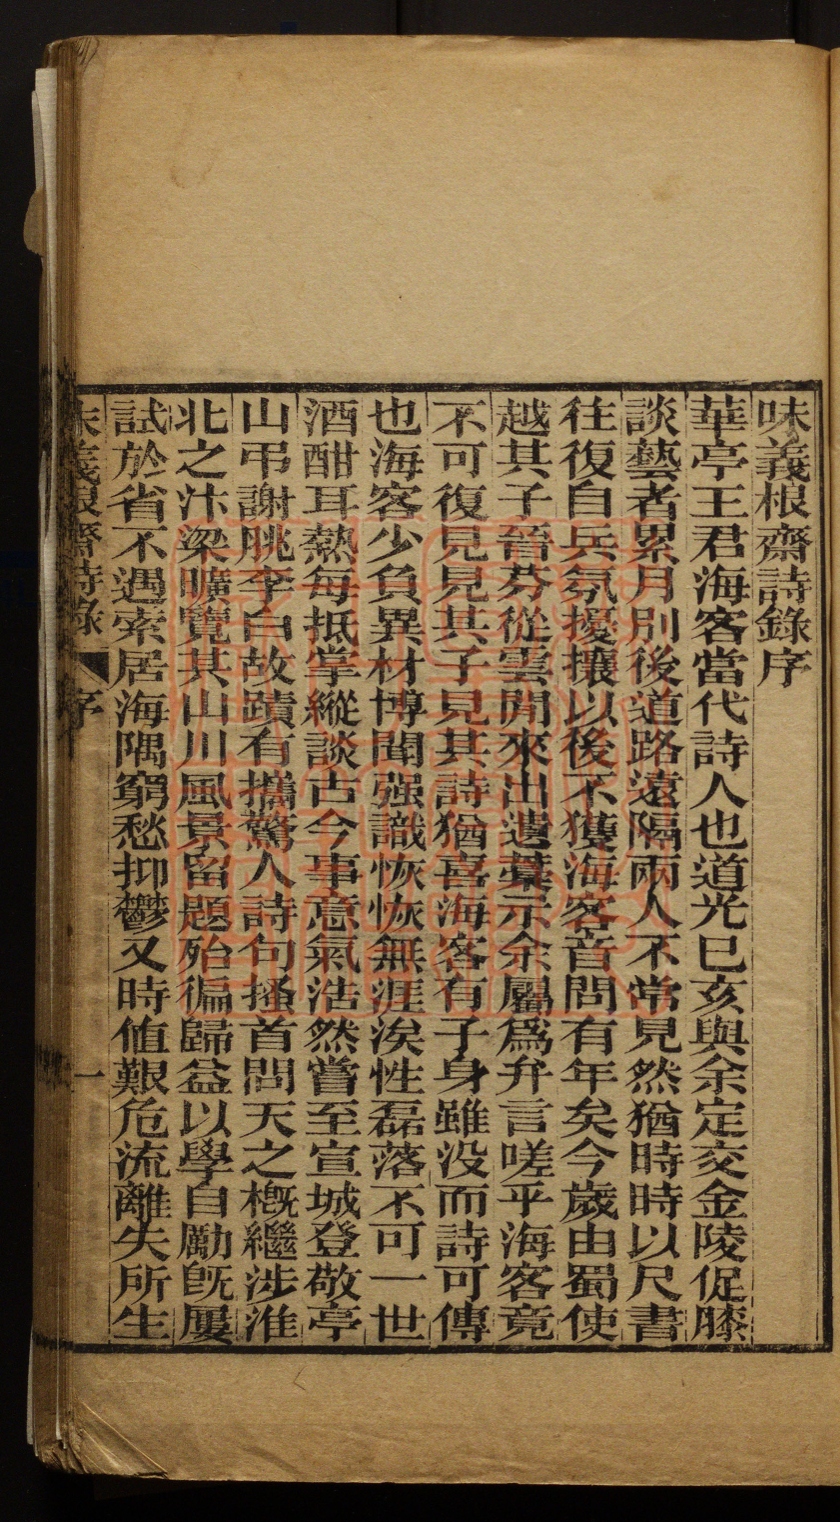 味義根齋詩錄序
華亭王君海客當代詩人也道光已亥與余定交金陵促膝
談藝者累月別後道路遠隔兩人不常見然猶時時以尺書
往復自兵氛擾攘以後不獲海客音問有年矣今歲由蜀使
越其子晉芬從雲閒來出遺藁示余屬爲弁言嗟乎海客竟
不可復見見其子見其詩猶喜海客有子身雖没而詩可傳
也海客少負異材博聞强識恢恢無涯涘性磊落不可一世
酒酣耳熱每抵掌縱談古今事意氣浩然嘗至宣城登敬亭
山弔謝脁李白故蹟有攜驚人詩句搔首問天之槪繼涉淮
北之汴梁曠覽其山川風景留題殆徧歸益以學自勵旣屢
試於省不遇索居海隅窮愁抑鬱又時値艱危流離失所生
味義根齋詩錄 序 一